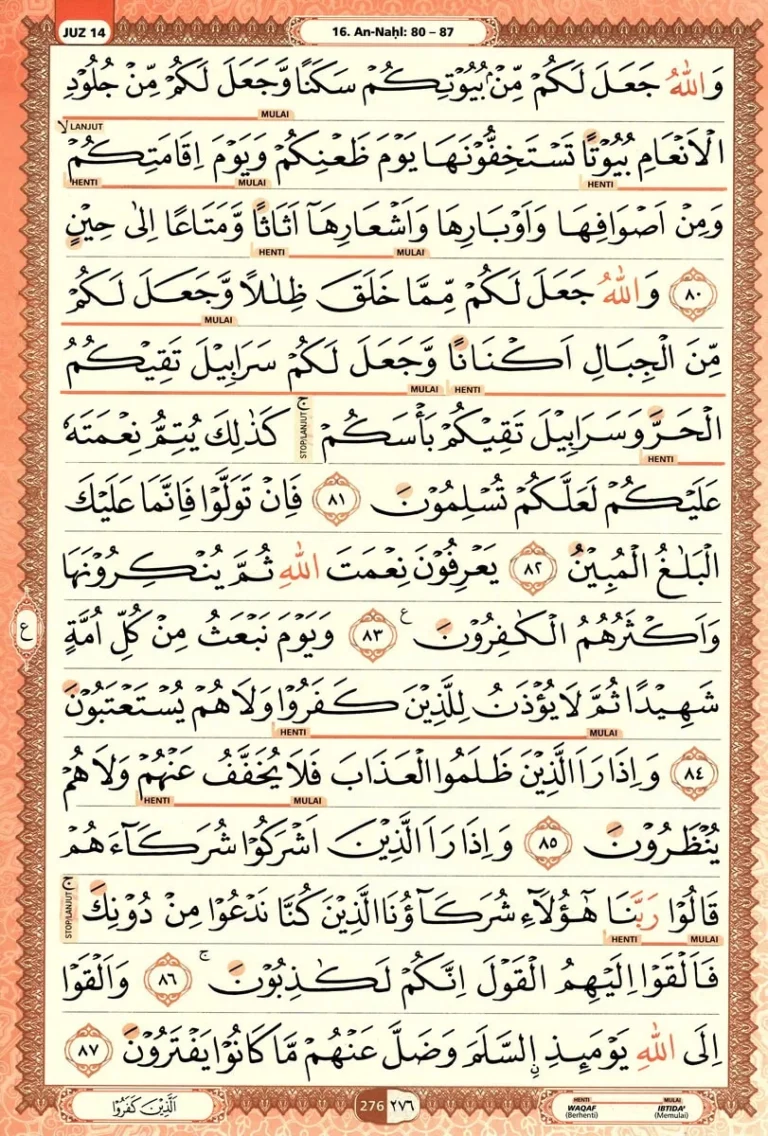 JUZ 14
16. An-Naḥl: 80 – 87
وَاللّٰهُ جَعَلَ لَكُمْ مِّنْۢ بُيُوْتِكُمْ سَكَنًا وَّجَعَلَ لَكُمْ مِّنْ جُلُوْدِ
MULAI
لا LANJUT
الْاَنْعَامِ بُيُوْتًا تَسْتَخِفُّوْنَهَا يَوْمَ ظَعْنِكُمْ وَيَوْمَ اِقَامَتِكُمْ
HENTI MULAI HENTI
وَمِنْ اَصْوَافِهَا وَاَوْبَارِهَا وَاَشْعَارِهَآ اَثَاثًا وَّمَتَاعًا اِلٰى حِيْنٍ
HENTI MULAI
٨٠ وَاللّٰهُ جَعَلَ لَكُمْ مِّمَّا خَلَقَ ظِلٰلًا وَّجَعَلَ لَكُمْ
MULAI
مِّنَ الْجِبَالِ اَكْنَانًا وَّجَعَلَ لَكُمْ سَرَابِيْلَ تَقِيْكُمُ
MULAI HENTI
الْحَرَّ وَسَرَابِيْلَ تَقِيْكُمْ بَأْسَكُمْ ۚ كَذٰلِكَ يُتِمُّ نِعْمَتَهٗ
STOP/LANJUT
HENTI
عَلَيْكُمْ لَعَلَّكُمْ تُسْلِمُوْنَ ٨١ فَاِنْ تَوَلَّوْا فَاِنَّمَا عَلَيْكَ
الْبَلٰغُ الْمُبِيْنُ ٨٢ يَعْرِفُوْنَ نِعْمَتَ اللّٰهِ ثُمَّ يُنْكِرُوْنَهَا
وَاَكْثَرُهُمُ الْكٰفِرُوْنَ ع ٨٣ وَيَوْمَ نَبْعَثُ مِنْ كُلِّ اُمَّةٍ
ع
شَهِيْدًا ثُمَّ لَا يُؤْذَنُ لِلَّذِيْنَ كَفَرُوْا وَلَا هُمْ يُسْتَعْتَبُوْنَ
HENTI MULAI
٨٤ وَاِذَا رَاَ الَّذِيْنَ ظَلَمُوا الْعَذَابَ فَلَا يُخَفَّفُ عَنْهُمْ وَلَا هُمْ
HENTI MULAI
يُنْظَرُوْنَ ٨٥ وَاِذَا رَاَ الَّذِيْنَ اَشْرَكُوْا شُرَكَاۤءَهُمْ
قَالُوْا رَبَّنَا هٰٓؤُلَاۤءِ شُرَكَاۤؤُنَا الَّذِيْنَ كُنَّا نَدْعُوْا مِنْ دُوْنِكَ ۚ
STOP/LANJUT
HENTI MULAI
فَاَلْقَوْا اِلَيْهِمُ الْقَوْلَ اِنَّكُمْ لَكٰذِبُوْنَ ۚ ٨٦ وَاَلْقَوْا
اِلَى اللّٰهِ يَوْمَىِٕذِ ِۨالسَّلَمَ وَضَلَّ عَنْهُمْ مَّا كَانُوْا يَفْتَرُوْنَ ٨٧
اَلَّذِيْنَ كَفَرُوْا
276 ٢٧٦
HENTI
WAQAF
(Berhenti)
MULAI
IBTIDA'
(Memulai)